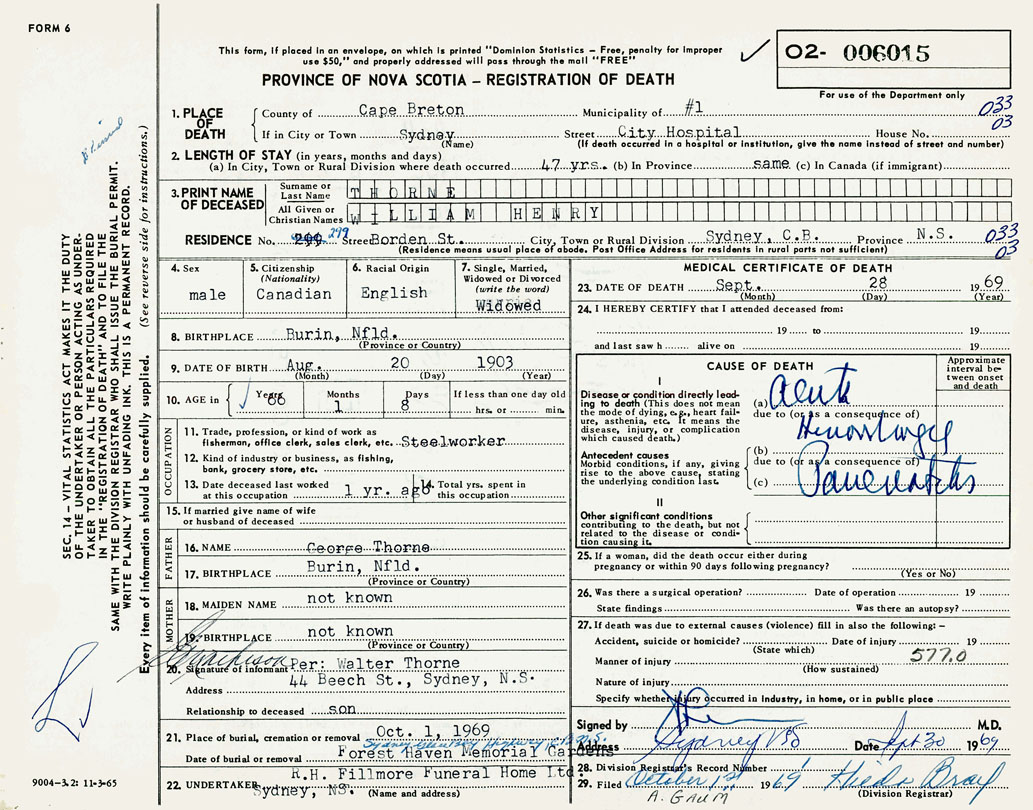 FORM 6
This form, if placed in an envelope, on which is printed "Dominion Statistics – Free, penalty for improper
use $50," and properly addressed will pass through the mail "FREE"
PROVINCE OF NOVA SCOTIA – REGISTRATION OF DEATH
O2- 006015
For use of the Department only
SEC. 14 – VITAL STATISTICS ACT MAKES IT THE DUTY
OF THE UNDERTAKER OR PERSON ACTING AS UNDER-
TAKER TO OBTAIN ALL THE PARTICULARS REQUIRED
IN THE "REGISTRATION OF DEATH" AND TO FILE THE
SAME WITH THE DIVISION REGISTRAR WHO SHALL ISSUE THE BURIAL PERMIT.
WRITE PLAINLY WITH UNFADING INK. THIS IS A PERMANENT RECORD.
Every item of information should be carefully supplied. (See reverse side for instructions.)
1. PLACE OF DEATH
County of Cape Breton Municipality of #1 033
03
If in City or Town Sydney Street City Hospital House No.
(Name) (If death occurred in a hospital or institution, give the name instead of street and number)
2. LENGTH OF STAY (in years, months and days)
(a) In City, Town or Rural Division where death occurred 47 yrs. (b) In Province same (c) In Canada (if immigrant)
3. PRINT NAME OF DECEASED
Surname or Last Name THORNE
All Given or Christian Names WILLIAM HENRY
RESIDENCE No. 299 299 Street Borden St. City, Town or Rural Division Sydney, C.B. Province N.S. 033
03
(Residence means usual place of abode. Post Office Address for residents in rural parts not sufficient)
4. Sex
male
5. Citizenship
(Nationality)
Canadian
6. Racial Origin
English
7. Single, Married,
Widowed or Divorced
(write the word)
Widowed
8. BIRTHPLACE Burin, Nfld.
(Province or Country)
9. DATE OF BIRTH Aug. 20 1903
(Month) (Day) (Year)
10. AGE in Years Months Days If less than one day old
66 1 8 hrs. or min.
OCCUPATION
11. Trade, profession, or kind of work as
fisherman, office clerk, sales clerk, etc. Steelworker
12. Kind of industry or business, as fishing,
bank, grocery store, etc.
13. Date deceased last worked
at this occupation 1 yr. ago
14. Total yrs. spent in
this occupation
15. If married give name of wife
or husband of deceased
FATHER
16. NAME George Thorne
17. BIRTHPLACE Burin, Nfld.
(Province or Country)
MOTHER
18. MAIDEN NAME not known
19. BIRTHPLACE not known
(Province or Country)
20. Signature of informant Per: Walter Thorne
Address 44 Beech St., Sydney, N.S.
Relationship to deceased son
21. Place of burial, cremation or removal Oct. 1, 1969
Date of burial or removal Forest Haven Memorial Gardens
22. UNDERTAKER R.H. Fillmore Funeral Home Ltd.
Sydney, NS. (Name and address)
9004-3.2: 11-3-65
MEDICAL CERTIFICATE OF DEATH
23. DATE OF DEATH Sept. 28 1969
(Month) (Day) (Year)
24. I HEREBY CERTIFY that I attended deceased from:
19 to 19
and last saw h alive on 19
CAUSE OF DEATH
Approximate
interval be-
tween onset
and death
I
Disease or condition directly lead-
ing to death (This does not mean
the mode of dying, e.g., heart fail-
ure, asthenia, etc. It means the
disease, injury, or complication
which caused death.)
(a) Acute
due to (or as a consequence of)
Hemorrhagic
Antecedent causes
Morbid conditions, if any, giving
rise to the above cause, stating
the underlying condition last.
(b)
due to (or as a consequence of)
(c) Pancreatitis
II
Other significant conditions
contributing to the death, but not
related to the disease or condi-
tion causing it.
25. If a woman, did the death occur either during
pregnancy or within 90 days following pregnancy?
(Yes or No)
26. Was there a surgical operation? Date of operation 19
State findings Was there an autopsy?
27. If death was due to external causes (violence) fill in also the following: –
Accident, suicide or homicide? Date of injury 19
(State which) 577.0
Manner of injury
(How sustained)
Nature of injury
Specify whether injury occurred in Industry, in home, or in public place
Signed by M.D.
Address Sydney NS Date Sept 30 1969
28. Division Registrar's Record Number
29. Filed October 1st 1969 Hilda Bray
A. GAUM (Division Registrar)